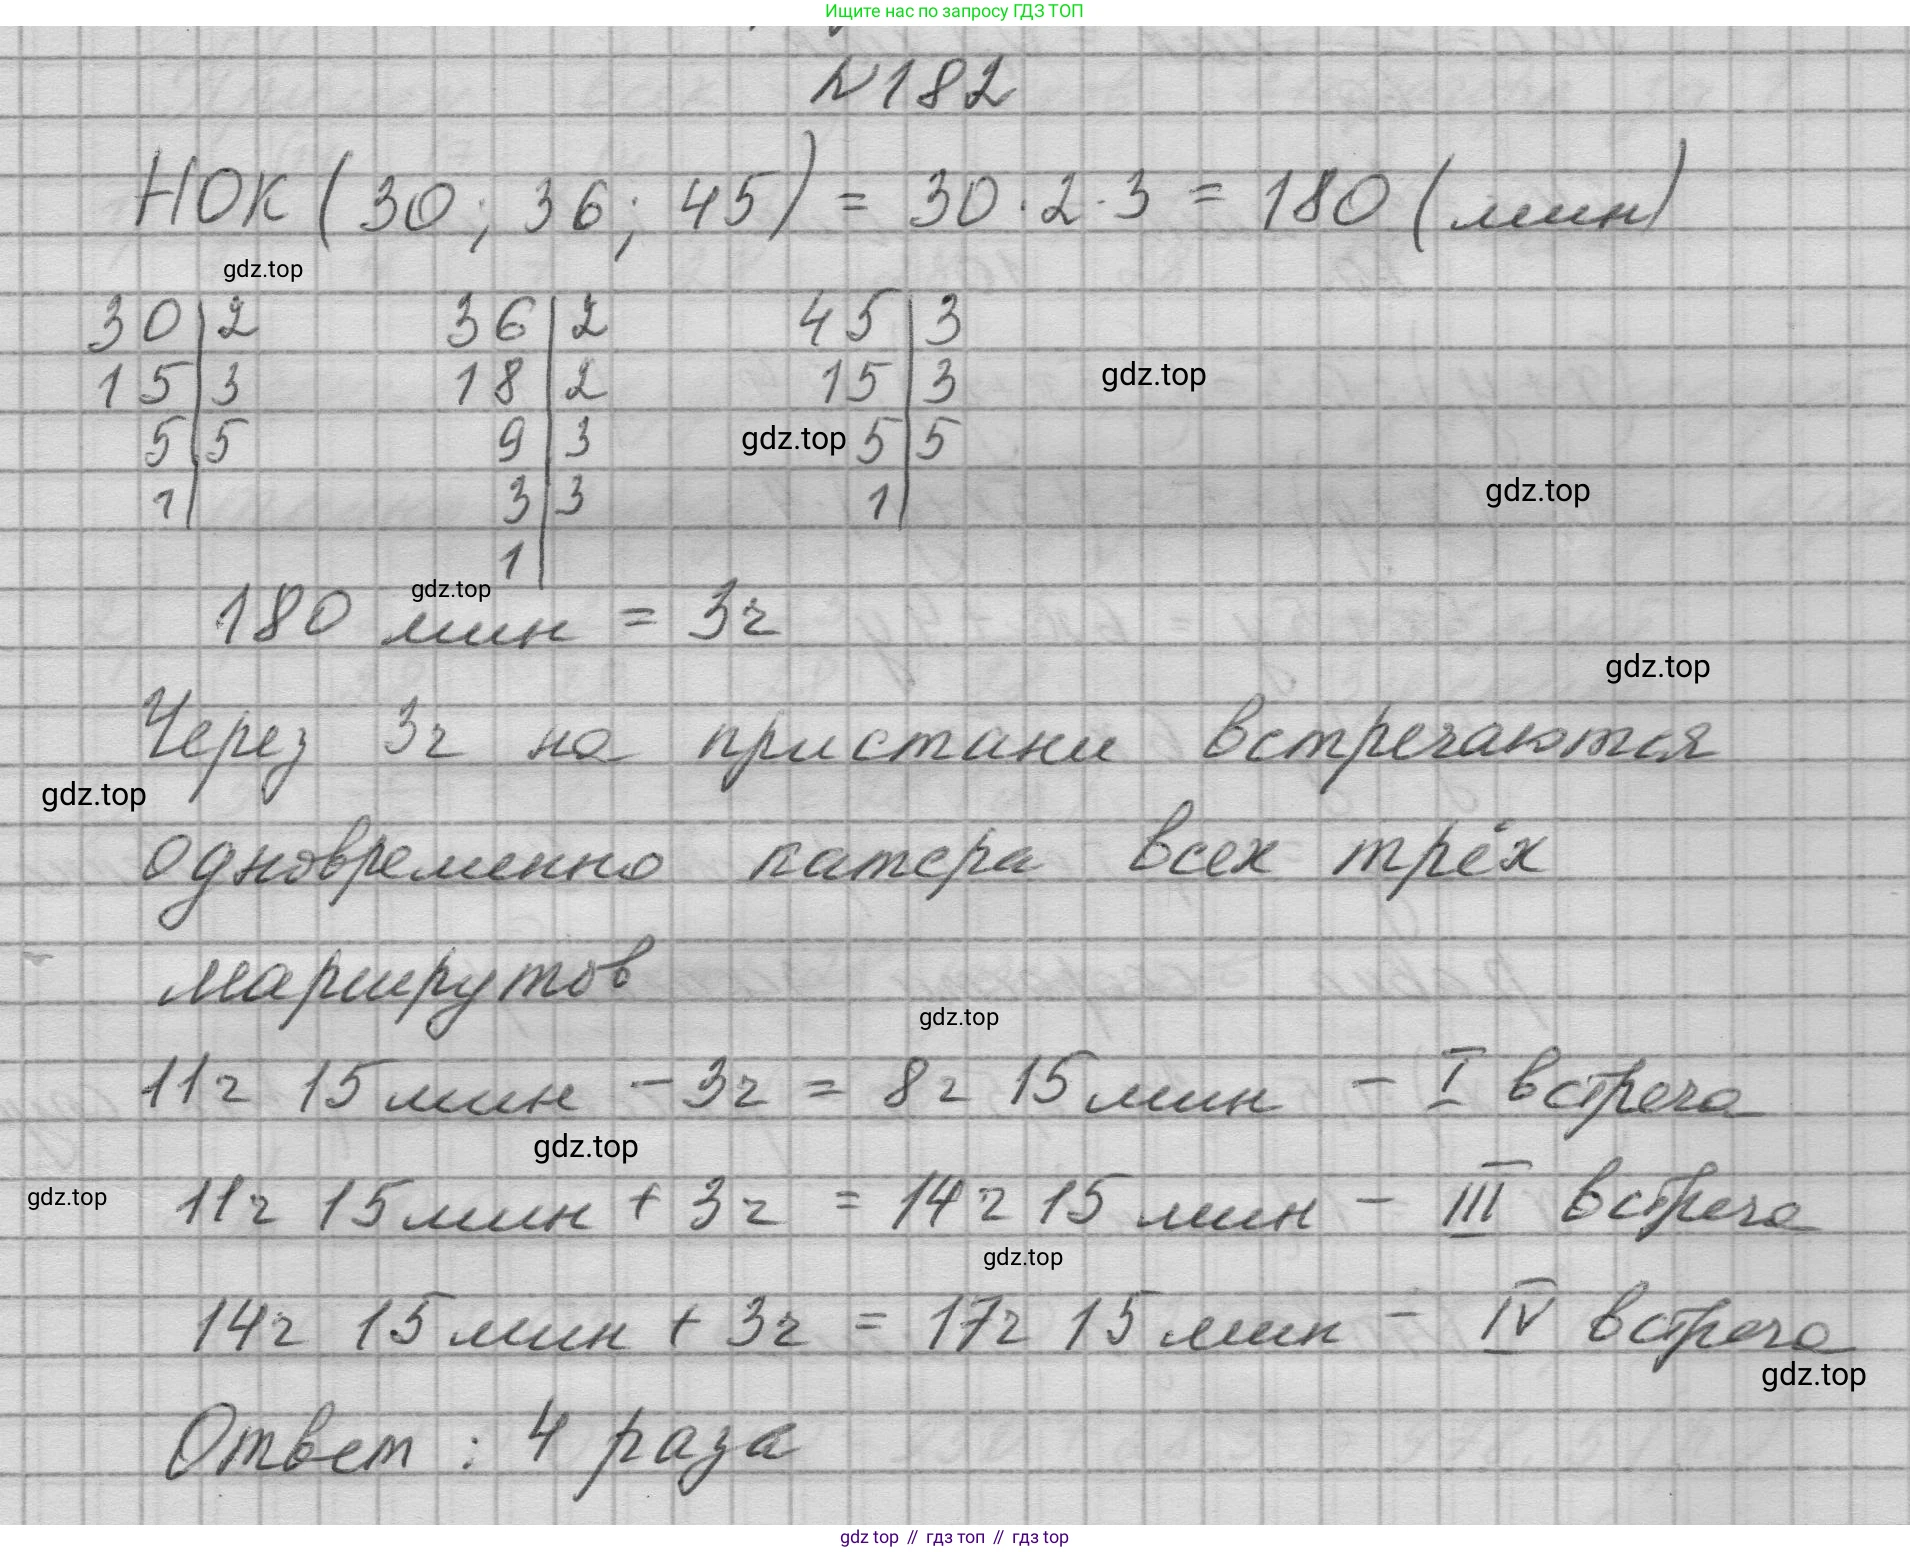 Ищите нас по запросу ГДЗ ТОП
№182
НОК (30; 36; 45) = 30 · 2 · 3 = 180 (мин)
gdz.top
30 | 2   36 | 2   45 | 3
15 | 3   18 | 2   15 | 3
gdz.top
5 | 5   9 | 3   gdz.top 5 | 5
1 |   3 | 3   1 |
gdz.top
1 |
gdz.top
180 мин = 3ч
gdz.top
Через 3ч на пристани встречаются
gdz.top
одновременно катера всех трёх
маршрутов
gdz.top
11ч 15 мин - 3ч = 8ч 15 мин - I встреча
gdz.top
gdz.top
11ч 15 мин + 3ч = 14ч 15 мин - III встреча
gdz.top
14ч 15 мин + 3ч = 17ч 15 мин - IV встреча
gdz.top
Ответ : 4 раза
gdz top // гдз топ // гдз top